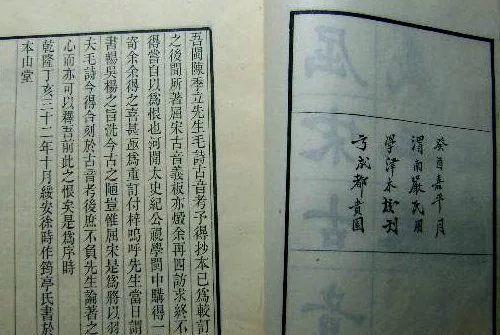 癸酉嘉平月
渭南嚴氏用
學津本校刊
于成都賁園
屈宋古
吾閩陳季立先生毛詩古音考予得抄本已爲較訂
之後聞所著屈宋古音義板亦燬余再四訪求終不
得嘗自以爲恨也河間太史紀公視學閩中購得一
寄余余得之喜甚亟爲重訂付梓嗚呼先生當日謂
書暢吳楊之旨洗今古之陋豈惟屈宋是爲將以羽
大毛詩今得合刻於古音考後庶不負先生論著之
心而亦可以釋吾前此之恨矣是爲序時
乾隆丁亥三十二年十月綏安徐時作筠亭氏書於
本山堂